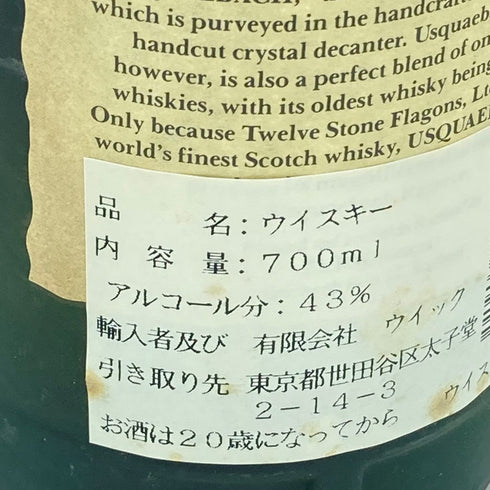 which is purveyed in the
handcut crystal decanter.
however, is also a perfect blend of
whiskies, with its oldest whisky being
Only because Twelve Stone Flagons,
world's finest Scotch whisky,
品名：ウイスキー
内容量：700ml
アルコール分：43%
輸入者及び 有限会社 ウイック
引き取り先 東京都世田谷区太子堂
2-14-3 ウイス
お酒は20歳になってから